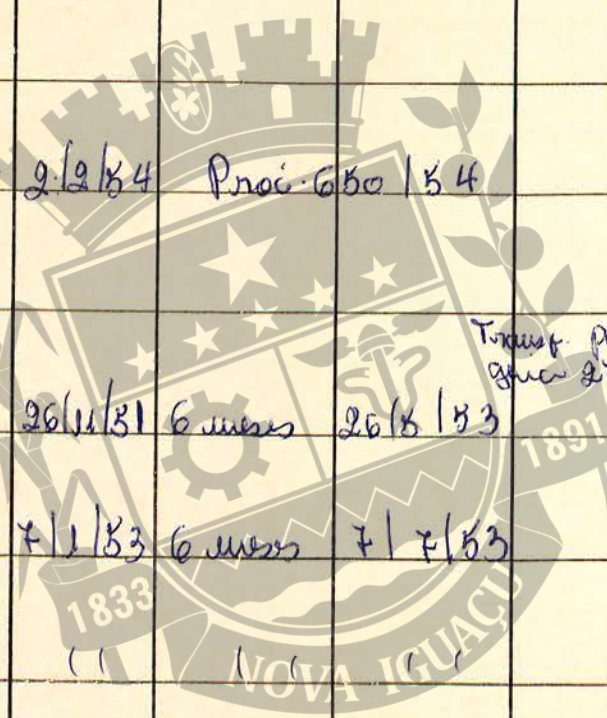 2/2/54 Proc. 650/54
Transf.
26/11/51 6 meses 26/5/53
1891
7/1/53 6 meses 7/7/53
1833
" " "
NOVA IGUAÇU